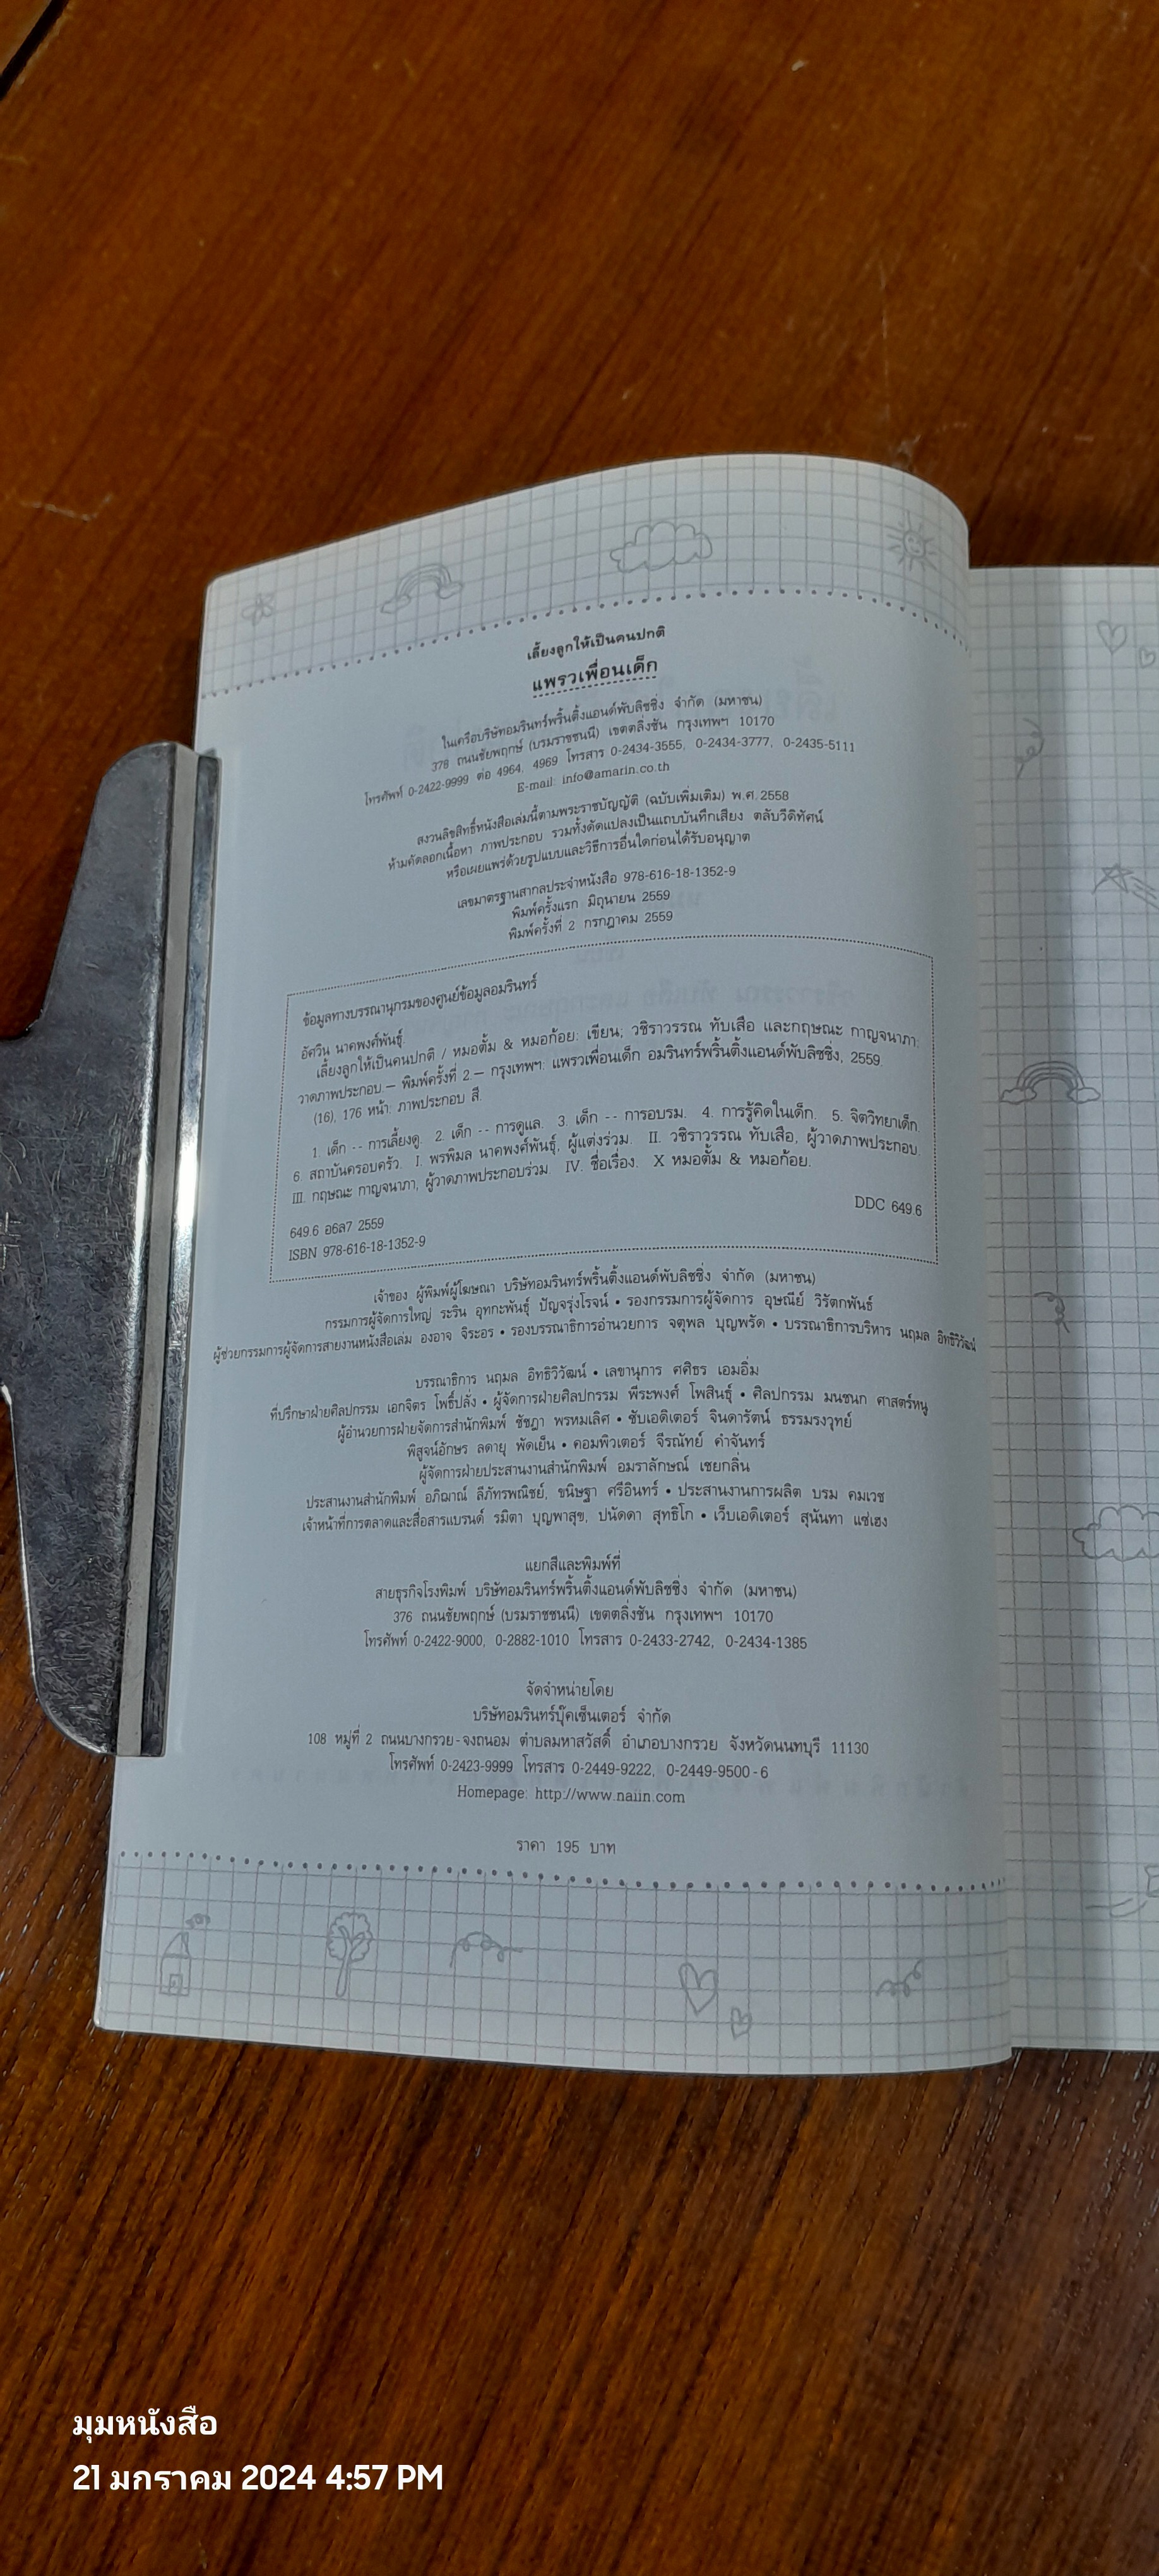 เลี้ยงลูกให้เป็นคนปกติ
แพรวเพื่อนเด็ก
ในเครือบริษัทอมรินทร์พริ้นติ้งแอนด์พับลิชชิ่ง จำกัด (มหาชน)
378 ถนนชัยพฤกษ์ (บรมราชชนนี) เขตตลิ่งชัน กรุงเทพฯ 10170
โทรศัพท์ 0-2422-9999 ต่อ 4964, 4969 โทรสาร 0-2434-3555, 0-2434-3777, 0-2435-5111
E-mail: info@amarin.co.th
สงวนลิขสิทธิ์หนังสือเล่มนี้ตามพระราชบัญญัติ (ฉบับเพิ่มเติม) พ.ศ. 2558
ห้ามคัดลอกเนื้อหา ภาพประกอบ รวมทั้งดัดแปลงเป็นแถบบันทึกเสียง ตลับวีดิทัศน์
หรือเผยแพร่ด้วยรูปแบบและวิธีการอื่นใดก่อนได้รับอนุญาต
เลขมาตรฐานสากลประจำหนังสือ 978-616-18-1352-9
พิมพ์ครั้งแรก มิถุนายน 2559
พิมพ์ครั้งที่ 2 กรกฎาคม 2559
ข้อมูลทางบรรณานุกรมของศูนย์ข้อมูลอมรินทร์
อัศวิน นาคพงศ์พันธุ์.
เลี้ยงลูกให้เป็นคนปกติ / หมอตั้ม & หมอก้อย: เขียน; วชิราวรรณ ทับเสือ และกฤษณะ กาญจนาภา:
วาดภาพประกอบ.— พิมพ์ครั้งที่ 2.— กรุงเทพฯ: แพรวเพื่อนเด็ก อมรินทร์พริ้นติ้งแอนด์พับลิชชิ่ง, 2559.
(16), 176 หน้า: ภาพประกอบ สี.
1. เด็ก -- การเลี้ยงดู. 2. เด็ก -- การดูแล. 3. เด็ก -- การอบรม. 4. การรู้คิดในเด็ก. 5. จิตวิทยาเด็ก.
6. สถาบันครอบครัว. I. พรพิมล นาคพงศ์พันธุ์, ผู้แต่งร่วม. II. วชิราวรรณ ทับเสือ, ผู้วาดภาพประกอบ.
III. กฤษณะ กาญจนาภา, ผู้วาดภาพประกอบร่วม. IV. ชื่อเรื่อง. X หมอตั้ม & หมอก้อย.
DDC 649.6
649.6 อ6ล7 2559
ISBN 978-616-18-1352-9
เจ้าของ ผู้พิมพ์ผู้โฆษณา บริษัทอมรินทร์พริ้นติ้งแอนด์พับลิชชิ่ง จำกัด (มหาชน)
กรรมการผู้จัดการใหญ่ ระริน อุทกะพันธุ์ ปัญจรุ่งโรจน์ • รองกรรมการผู้จัดการ อุษณีย์ วิรัตกพันธ์
ผู้ช่วยกรรมการผู้จัดการสายงานหนังสือเล่ม องอาจ จิระอร • รองบรรณาธิการอำนวยการ จตุพล บุญพรัด • บรรณาธิการบริหาร นฤมล อิทธิวิวัฒน์
บรรณาธิการ นฤมล อิทธิวิวัฒน์ • เลขานุการ ศศิธร เอมอิ่ม
ที่ปรึกษาฝ่ายศิลปกรรม เอกจิตร โพธิ์ปลั่ง • ผู้จัดการฝ่ายศิลปกรรม พีระพงศ์ โพสินธุ์ • ศิลปกรรม มนชนก ศาสตร์หนู
ผู้อำนวยการฝ่ายจัดการสำนักพิมพ์ ชัชฎา พรหมเลิศ • ซับเอดิเตอร์ จินดารัตน์ ธรรมรงวุทย์
พิสูจน์อักษร ลดายุ พัดเย็น • คอมพิวเตอร์ จีรณัทย์ คำจันทร์
ผู้จัดการฝ่ายประสานงานสำนักพิมพ์ อมราลักษณ์ เชยกลิ่น
ประสานงานสำนักพิมพ์ อภิฌาณ์ ลีภัทรพณิชย์, ขนิษฐา ศรีอินทร์ • ประสานงานการผลิต บรม คมเวช
เจ้าหน้าที่การตลาดและสื่อสารแบรนด์ รมิตา บุญพาสุข, ปนัดดา สุทธิโก • เว็บเอดิเตอร์ สุนันทา แซ่เฮง
แยกสีและพิมพ์ที่
สายธุรกิจโรงพิมพ์ บริษัทอมรินทร์พริ้นติ้งแอนด์พับลิชชิ่ง จำกัด (มหาชน)
376 ถนนชัยพฤกษ์ (บรมราชชนนี) เขตตลิ่งชัน กรุงเทพฯ 10170
โทรศัพท์ 0-2422-9000, 0-2882-1010 โทรสาร 0-2433-2742, 0-2434-1385
จัดจำหน่ายโดย
บริษัทอมรินทร์บุ๊คเซ็นเตอร์ จำกัด
108 หมู่ที่ 2 ถนนบางกรวย-จงถนอม ตำบลมหาสวัสดิ์ อำเภอบางกรวย จังหวัดนนทบุรี 11130
โทรศัพท์ 0-2423-9999 โทรสาร 0-2449-9222, 0-2449-9500-6
Homepage: http://www.naiin.com
ราคา 195 บาท
มุมหนังสือ
21 มกราคม 2024 4:57 PM